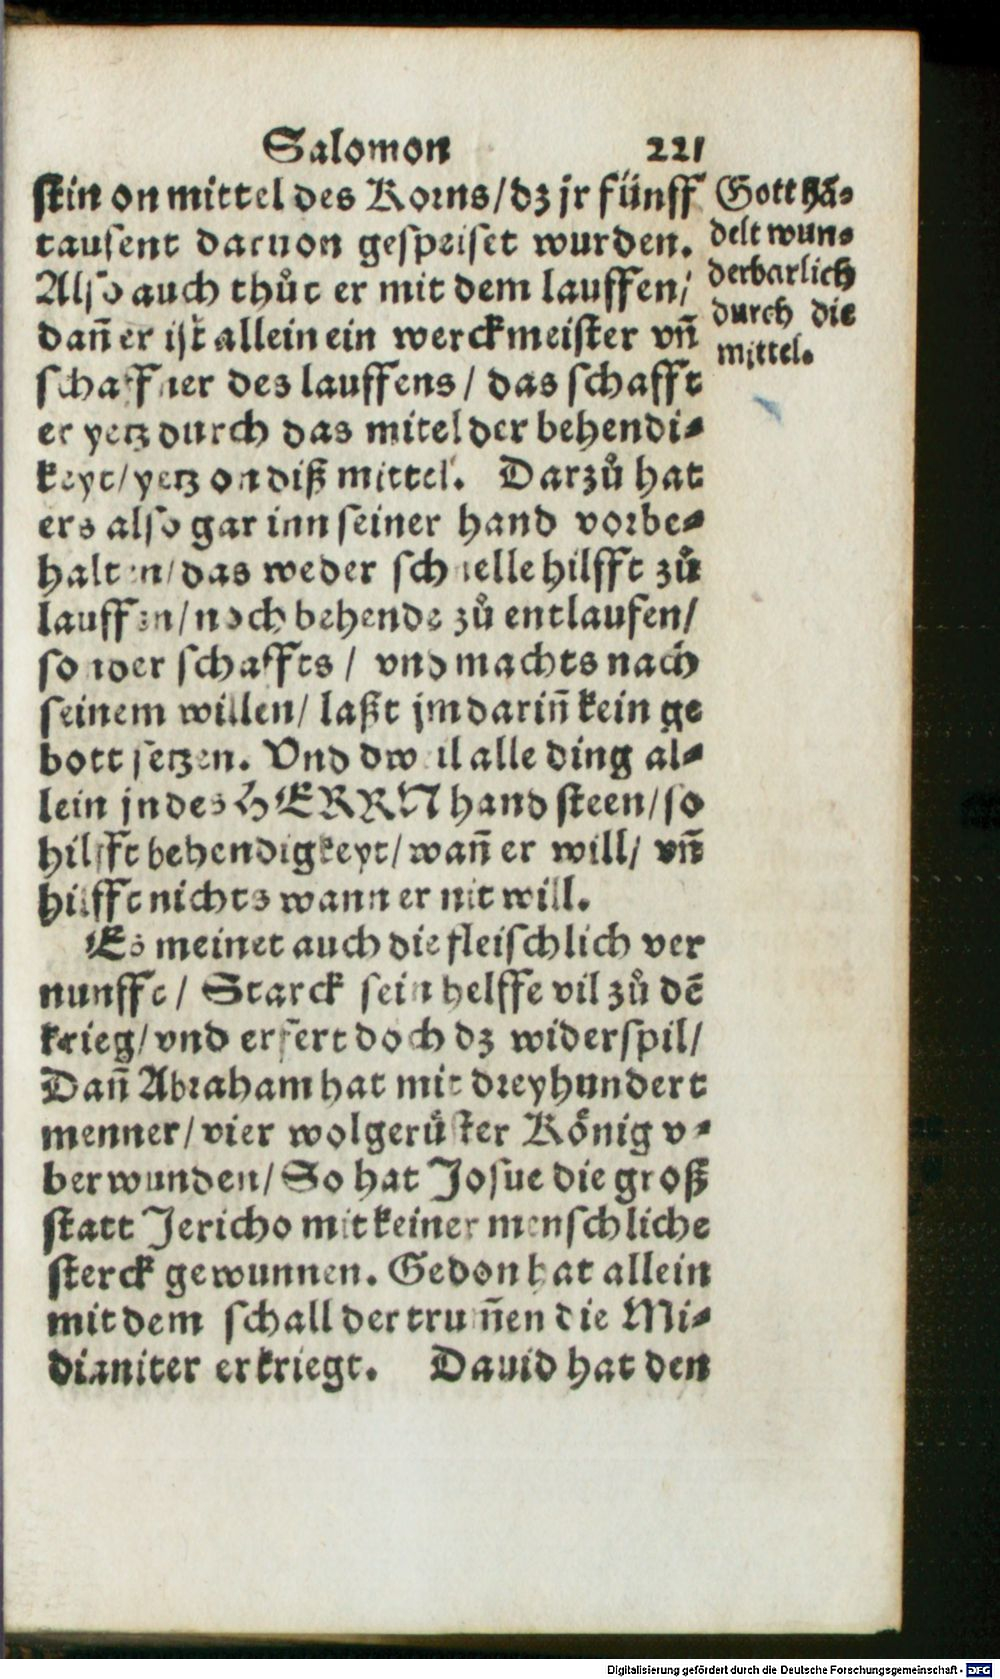 Salomon 221
stin on mittel des Korns/dz jr fünff
tausent daruon gespeiset wurden.
Also auch thůt er mit dem lauffen/
dañ er ist allein ein werckmeister vñ
schaffner des lauffens/ das schafft
er yetz durch das mitel der behendi-
keyt/yetz on diß mittel. Darzů hat
ers also gar inn seiner hand vorbe-
halten/das weder schnelle hilfft zů
lauffen/noch behende zů entlaufen/
so wer schaffts/ vnd machts nach
seinem willen/ laßt jm dariñ kein ge
bott setzen. Vnd dweil alle ding al-
lein jn des HERRN hand steen/so
hilfft behendigkeyt/wañ er will/ vñ
hilfft nichts wann er nit will.
Es meinet auch die fleischlich ver
nunfft/ Starck sein helffe vil zů dē
krieg/vnd erfert doch dz widerspil/
Dañ Abraham hat mit dreyhundert
menner/vier wolgerůster König v-
berwunden/So hat Josue die groß
statt Jericho mit keiner menschliche
sterck gewunnen. Gedon hat allein
mit dem schall der trumñen die Mi-
dianiter erkriegt. Dauid hat den
Gott hā-
delt wun-
derbarlich
durch die
mittel.
Digitalisierung gefördert durch die Deutsche Forschungsgemeinschaft - DFG